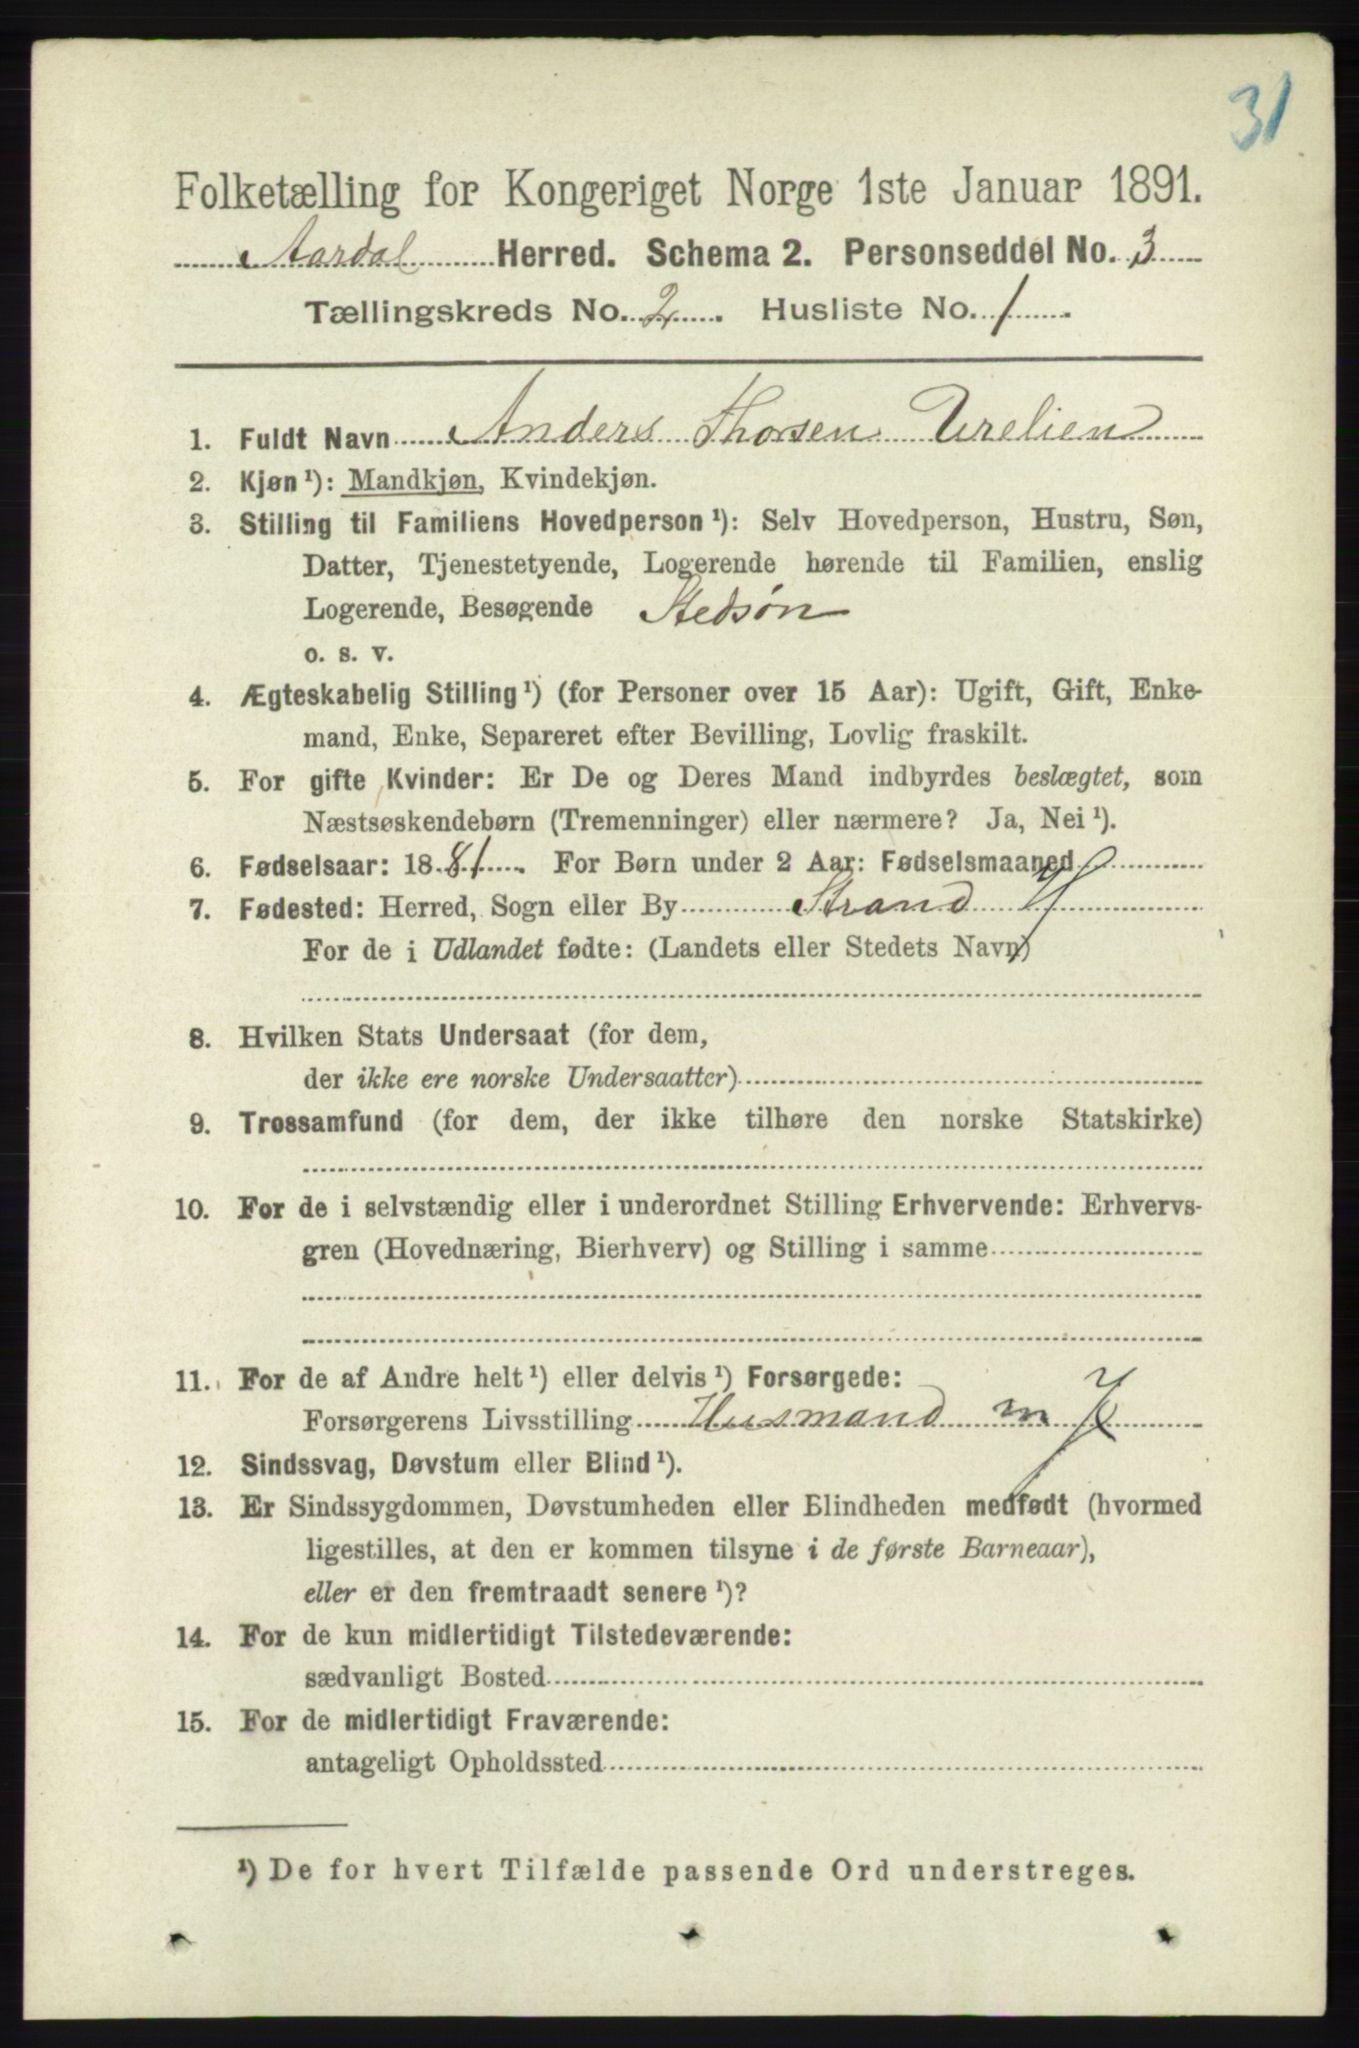 31
Folketælling for Kongeriget Norge 1ste Januar 1891.
Aardal Herred. Schema 2. Personseddel No. 3
Tællingskreds No. 2. Husliste No. 1.
1. Fuldt Navn Anders Thorsen Urelien
2. Kjøn¹): Mandkjøn, Kvindekjøn.
3. Stilling til Familiens Hovedperson¹): Selv Hovedperson, Hustru, Søn,
Datter, Tjenestetyende, Logerende hørende til Familien, enslig
Logerende, Besøgende Stedsøn
o. s. v.
4. Ægteskabelig Stilling¹) (for Personer over 15 Aar): Ugift, Gift, Enke-
mand, Enke, Separeret efter Bevilling, Lovlig fraskilt.
5. For gifte Kvinder: Er De og Deres Mand indbyrdes beslægtet, som
Næstsøskendebørn (Tremenninger) eller nærmere? Ja, Nei¹).
6. Fødselsaar: 1881. For Børn under 2 Aar: Fødselsmaaned
7. Fødested: Herred, Sogn eller By Strand
For de i Udlandet fødte: (Landets eller Stedets Navn)
8. Hvilken Stats Undersaat (for dem,
der ikke ere norske Undersaatter)
9. Trossamfund (for dem, der ikke tilhøre den norske Statskirke)
10. For de i selvstændig eller i underordnet Stilling Erhvervende: Erhvervs-
gren (Hovednæring, Bierhverv) og Stilling i samme
11. For de af Andre helt¹) eller delvis¹) Forsørgede:
Forsørgerens Livsstilling Husmand m J
12. Sindssvag, Døvstum eller Blind¹).
13. Er Sindssygdommen, Døvstumheden eller Blindheden medfødt (hvormed
ligestilles, at den er kommen tilsyne i de første Barneaar),
eller er den fremtraadt senere¹)?
14. For de kun midlertidigt Tilstedeværende:
sædvanligt Bosted
15. For de midlertidigt Fraværende:
antageligt Opholdssted
¹) De for hvert Tilfælde passende Ord understreges.